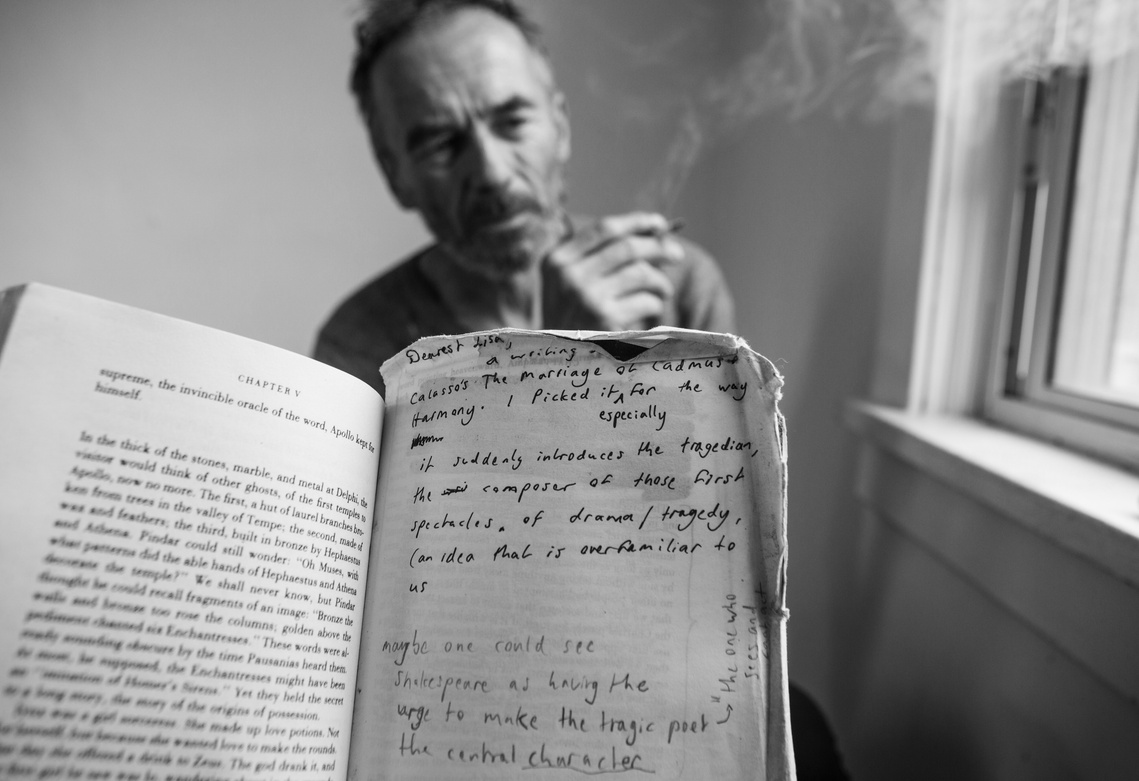 CHAPTER V
supreme, the invincible oracle of the word, Apollo kept for
himself.
In the thick of the stones, marble, and metal at Delphi, the
visitor would think of other ghosts, of the first temples to
Apollo, now no more. The first, a hut of laurel branches bro-
ken from trees in the valley of Tempe; the second, made of
wax and feathers; the third, built in bronze by Hephaestus
and Athena. Pindar could still wonder: "Oh Muses, with
what patterns did the able hands of Hephaestus and Athena
decorate the temple?" We shall never know, but Pindar
thought he could recall fragments of an image: "Bronze the
walls and bronze too rose the columns; golden above the
pediment chanted six Enchantresses." These words were al-
ready sounding obscure by the time Pausanias heard them.
At most, he supposed, the Enchantresses might have been
an "imitation of Homer's Sirens." Yet they held the secret
to a long story, the story of the origins of possession.
Iynx was a girl sorceress. She made up love potions. Not
for herself, but because she wanted love to make the rounds.
One day she offered a drink to Zeus. The god drank it, and
Dearest Lisa,
a writing -
Calasso's The Marriage of Cadmus +
Harmony. I Picked it ^ for the way
especially
it suddenly introduces the tragedian,
the composer of those first
spectacles, of drama / tragedy,
(an idea that is overfamiliar to
us
maybe one could see
Shakespeare as having the
urge to make the tragic poet
the central character
"the one who
sees and